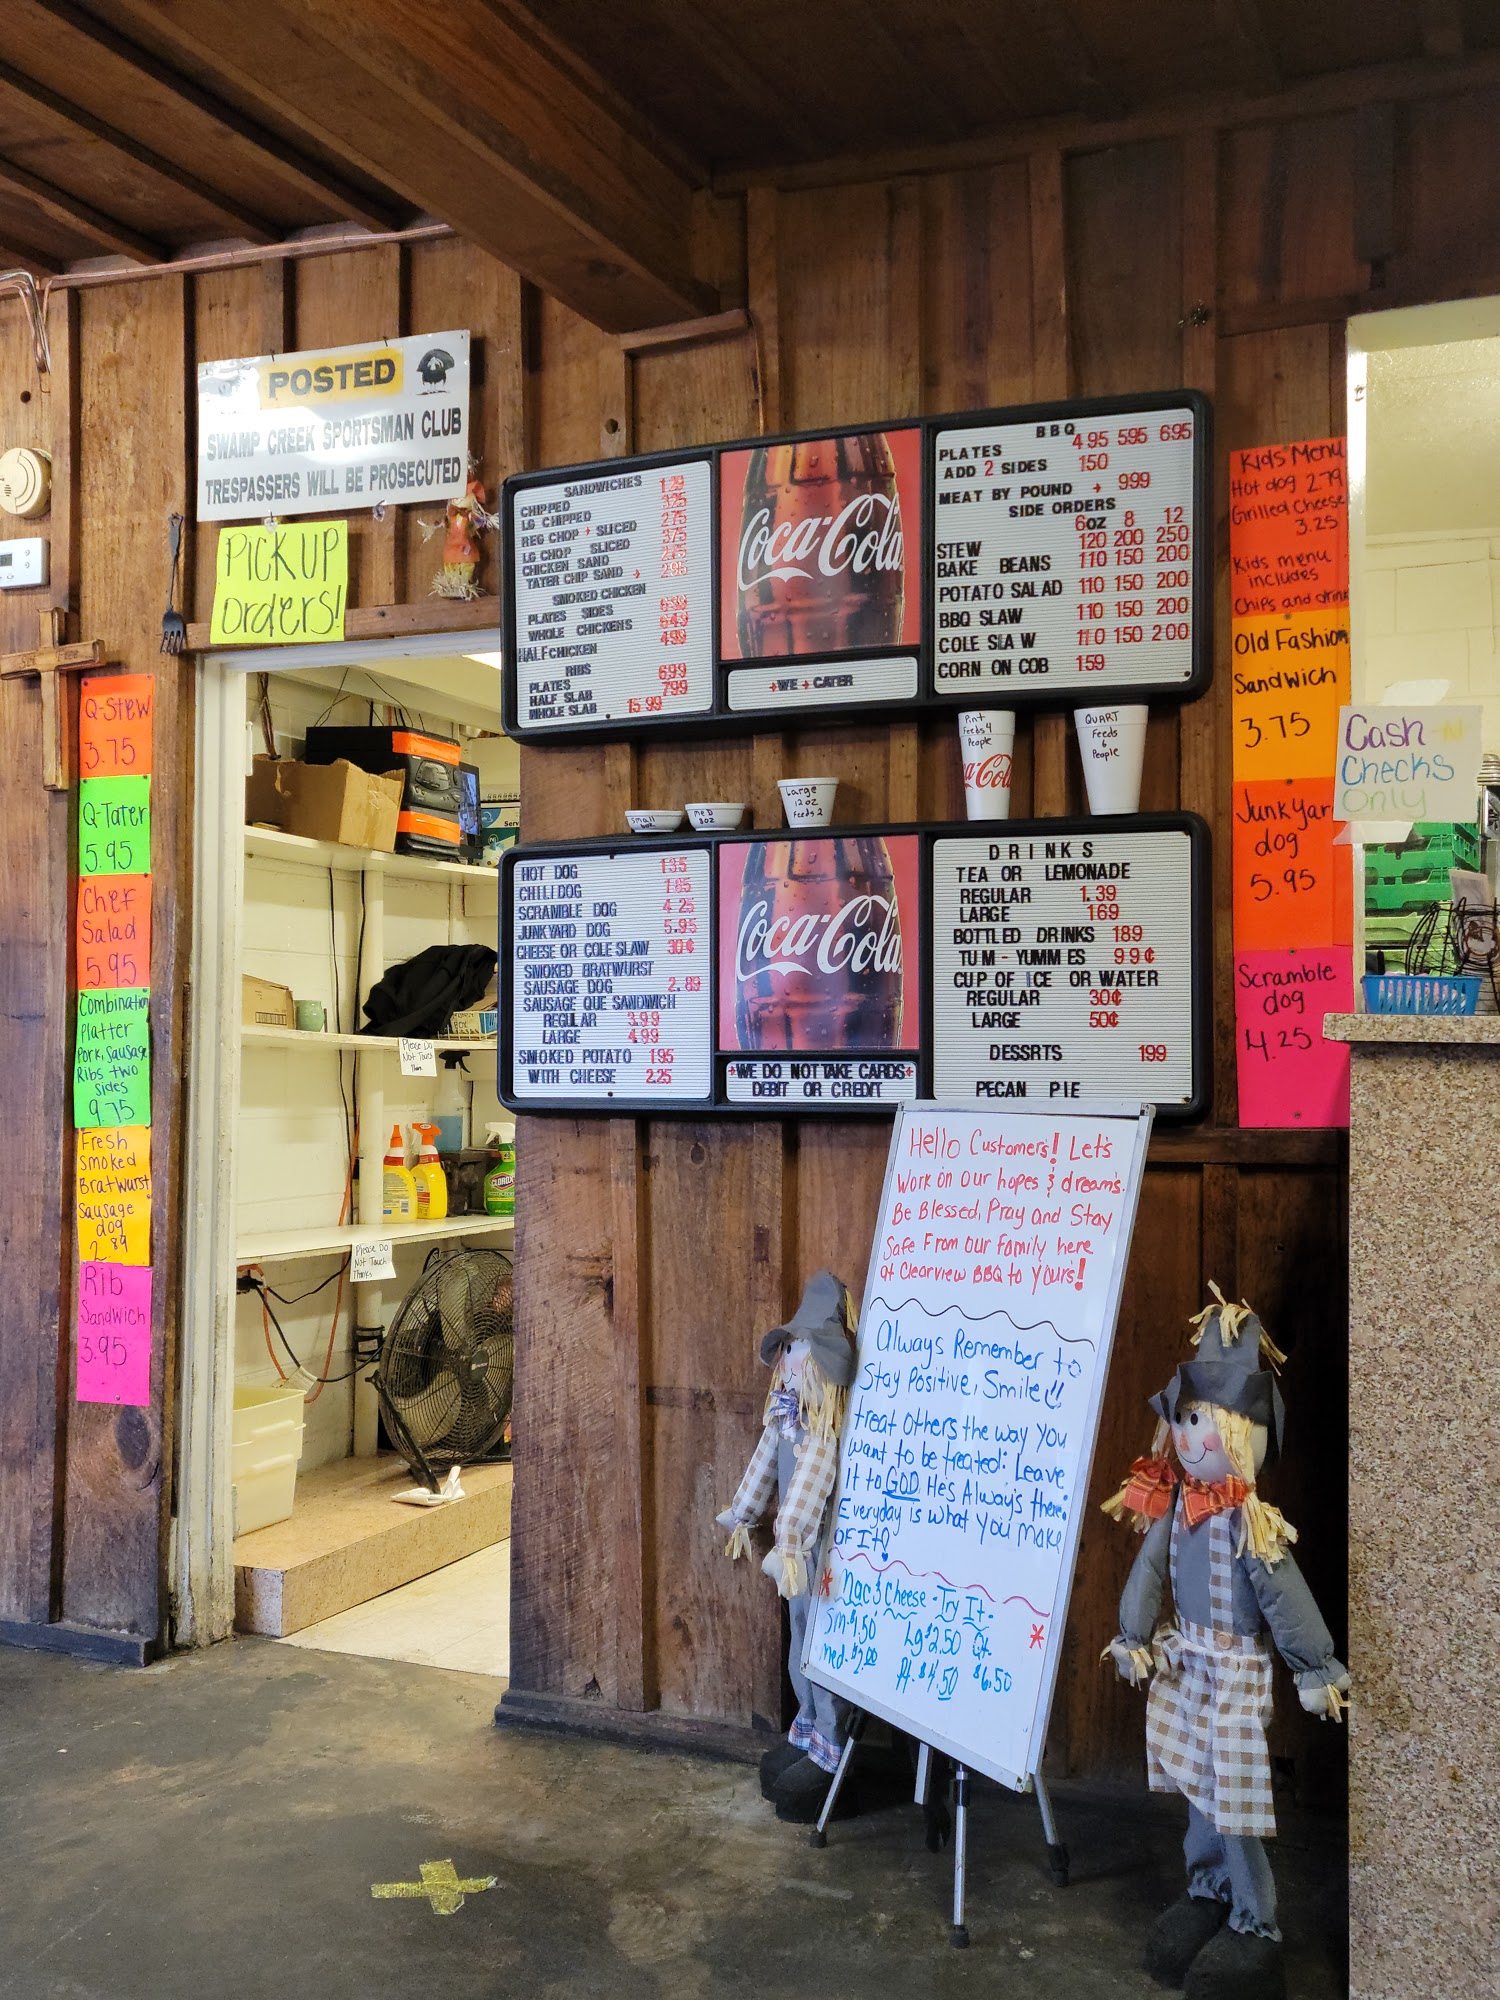 POSTED
SWAMP CREEK SPORTSMAN CLUB
TRESPASSERS WILL BE PROSECUTED
PICK UP
Orders!
Q-Stew
3.75
Q-Tater
5.95
Chef
Salad
5.95
Combination
Platter
Pork, Sausage
Ribs two
sides
9.75
Fresh
Smoked
Bratwurst
Sausage
dog
2.89
Rib
Sandwich
3.95
SANDWICHES
CHIPPED 1.29
LG CHIPPED 3.25
REG CHOP + SLICED 2.75
LG CHOP SLICED 3.75
CHICKEN SAND
TATER CHIP SAND
SMOKED CHICKEN
PLATES SIDES
WHOLE CHICKENS 649
HALF CHICKEN 499
RIBS
PLATES 699
HALF SLAB 799
WHOLE SLAB 15 99
Coca-Cola
WE CATER
BBQ
PLATES 495 595 695
ADD 2 SIDES 150
MEAT BY POUND 999
SIDE ORDERS
6oz 8 12
STEW 120 200 250
BAKE BEANS 110 150 200
POTATO SALAD 110 150 200
BBQ SLAW 110 150 200
COLE SLAW 110 150 200
CORN ON COB 159
Small
MED
8oz
Large
12 oz
Feeds 2
Pint
Feeds 4
People
QUART
Feeds
6
People
HOT DOG 135
CHILI DOG
SCRAMBLE DOG 4 25
JUNKYARD DOG 5.95
CHEESE OR COLE SLAW 30¢
SMOKED BRATWURST
SAUSAGE DOG 2.89
SAUSAGE QUE SANDWICH
REGULAR 3.99
LARGE 4.99
SMOKED POTATO 195
WITH CHEESE 2.25
Coca-Cola
WE DO NOT TAKE CARDS
DEBIT OR CREDIT
DRINKS
TEA OR LEMONADE
REGULAR 1.39
LARGE 169
BOTTLED DRINKS 189
TUM-YUMMIES 99¢
CUP OF ICE OR WATER
REGULAR 30¢
LARGE 50¢
DESSRTS 199
PECAN PIE
Kids Menu
Hot dog 2.79
Grilled Cheese
3.25
Kids menu
includes
Chips and drink
Old Fashion
Sandwich
3.75
Junkyard
dog
5.95
Scramble
dog
4.25
Cash-N
Checks
Only
Please Do
Not Touch
Please Do
Not Touch
Thanks
CLOROX
Hello Customers! Let's
Work on our hopes & dreams.
Be Blessed, Pray and Stay
Safe From our family here
at Clearview BBQ to Yours!
Always Remember to
Stay Positive, Smile!!
treat others the way you
want to be treated: Leave
It to GOD He's Always there.
Everyday is what You Make
OF It!
Mac & Cheese - Try It -
Sm $1.50 Lg $2.50 Qt.
med. $2.00 Pt. $4.50 $6.50